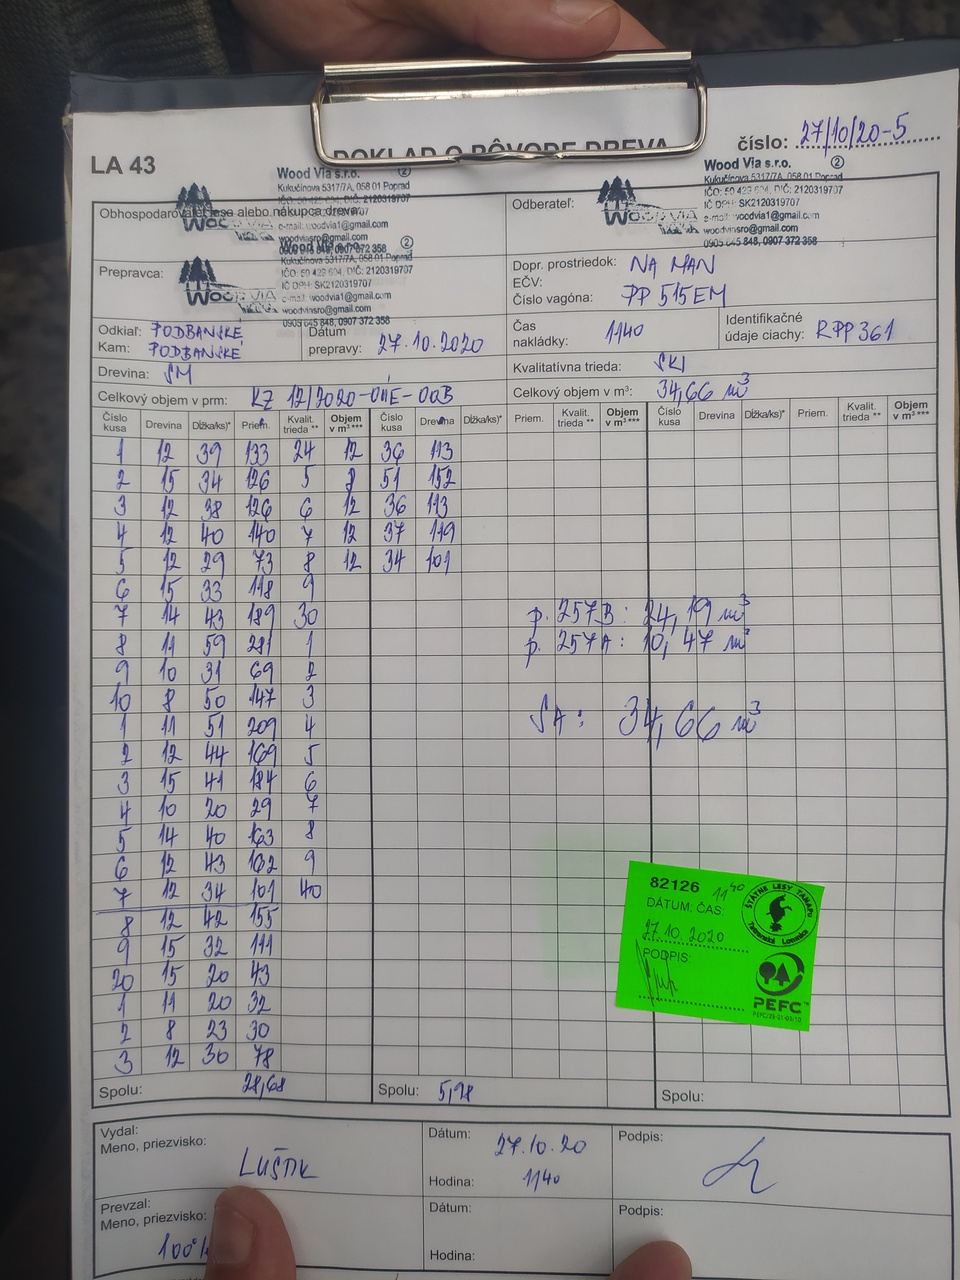 LA 43
DOKLAD O PÔVODE DREVA
číslo: 27/10/20-5
Obhospodarovateľ lesa alebo nákupca dreva:
Wood Via s.r.o. 2
Kukučínova 5317/7A, 058 01 Poprad
IČO: 50 429 604, DIČ: 2120319707
e-mail: woodvia1@gmail.com
woodviasro@gmail.com
WOOD VIA
Odberateľ:
Wood Via s.r.o. 2
Kukučínova 5317/7A, 058 01 Poprad
IČO: 50 429 604, DIČ: 2120319707
IČ DPH: SK2120319707
e-mail: woodvia1@gmail.com
woodviasro@gmail.com
0905 645 848, 0907 372 358
WOOD VIA
Prepravca:
Wood Via s.r.o. 2
Kukučínova 5317/7A, 058 01 Poprad
IČO: 50 429 604, DIČ: 2120319707
IČ DPH: SK2120319707
e-mail: woodvia1@gmail.com
woodviasro@gmail.com
0905 645 848, 0907 372 358
WOOD VIA
Dopr. prostriedok: NA MAN
EČV:
Číslo vagóna: PP 515EM
Odkiaľ: PODBANSKÉ
Kam: PODBANSKÉ
Dátum prepravy: 27.10.2020
Čas nakládky: 1140
Identifikačné údaje ciachy: RPP361
Drevina: SM
Kvalitatívna trieda: SKI
Celkový objem v prm: KZ 12/2020-OÚE-OOB
Celkový objem v m³: 34,66 m³
Číslo kusa Drevina Dĺžka/ks)* Priem. Kvalit. trieda ** Objem v m³ *** Číslo kusa Drevina Dĺžka/ks)* Priem. Kvalit. trieda ** Objem v m³ *** Číslo kusa Drevina Dĺžka/ks)* Priem. Kvalit. trieda ** Objem v m³ ***
1 12 39 133 24 12 36 113
2 15 34 126 5 8 51 152
3 12 38 126 6 12 36 113
4 12 40 140 7 12 37 119
5 12 29 73 8 12 34 101
6 15 33 118 9
7 14 43 189 30
8 11 59 281 1
9 10 31 69 2
10 8 50 147 3
1 11 51 209 4
2 12 44 169 5
3 15 41 184 6
4 10 20 29 7
5 14 40 163 8
6 12 43 162 9
7 12 34 101 40
8 12 42 155
9 15 32 111
20 15 20 43
1 11 20 32
2 8 23 30
3 12 30 78
p. 257B: 24,19 m³
p. 257A: 10,47 m³
SA: 34,66 m³
82126 11⁴⁰
DÁTUM; ČAS:
27.10.2020
PODPIS:
ŠTÁTNE LESY TANAPU
Tatranská Lomnica
PEFC™
Spolu: 28,68
Spolu: 5,98
Spolu:
Vydal:
Meno, priezvisko:
LUŠTIK
Dátum: 27.10.20
Hodina: 1140
Podpis:
Prevzal:
Meno, priezvisko:
Dátum:
Hodina:
Podpis: